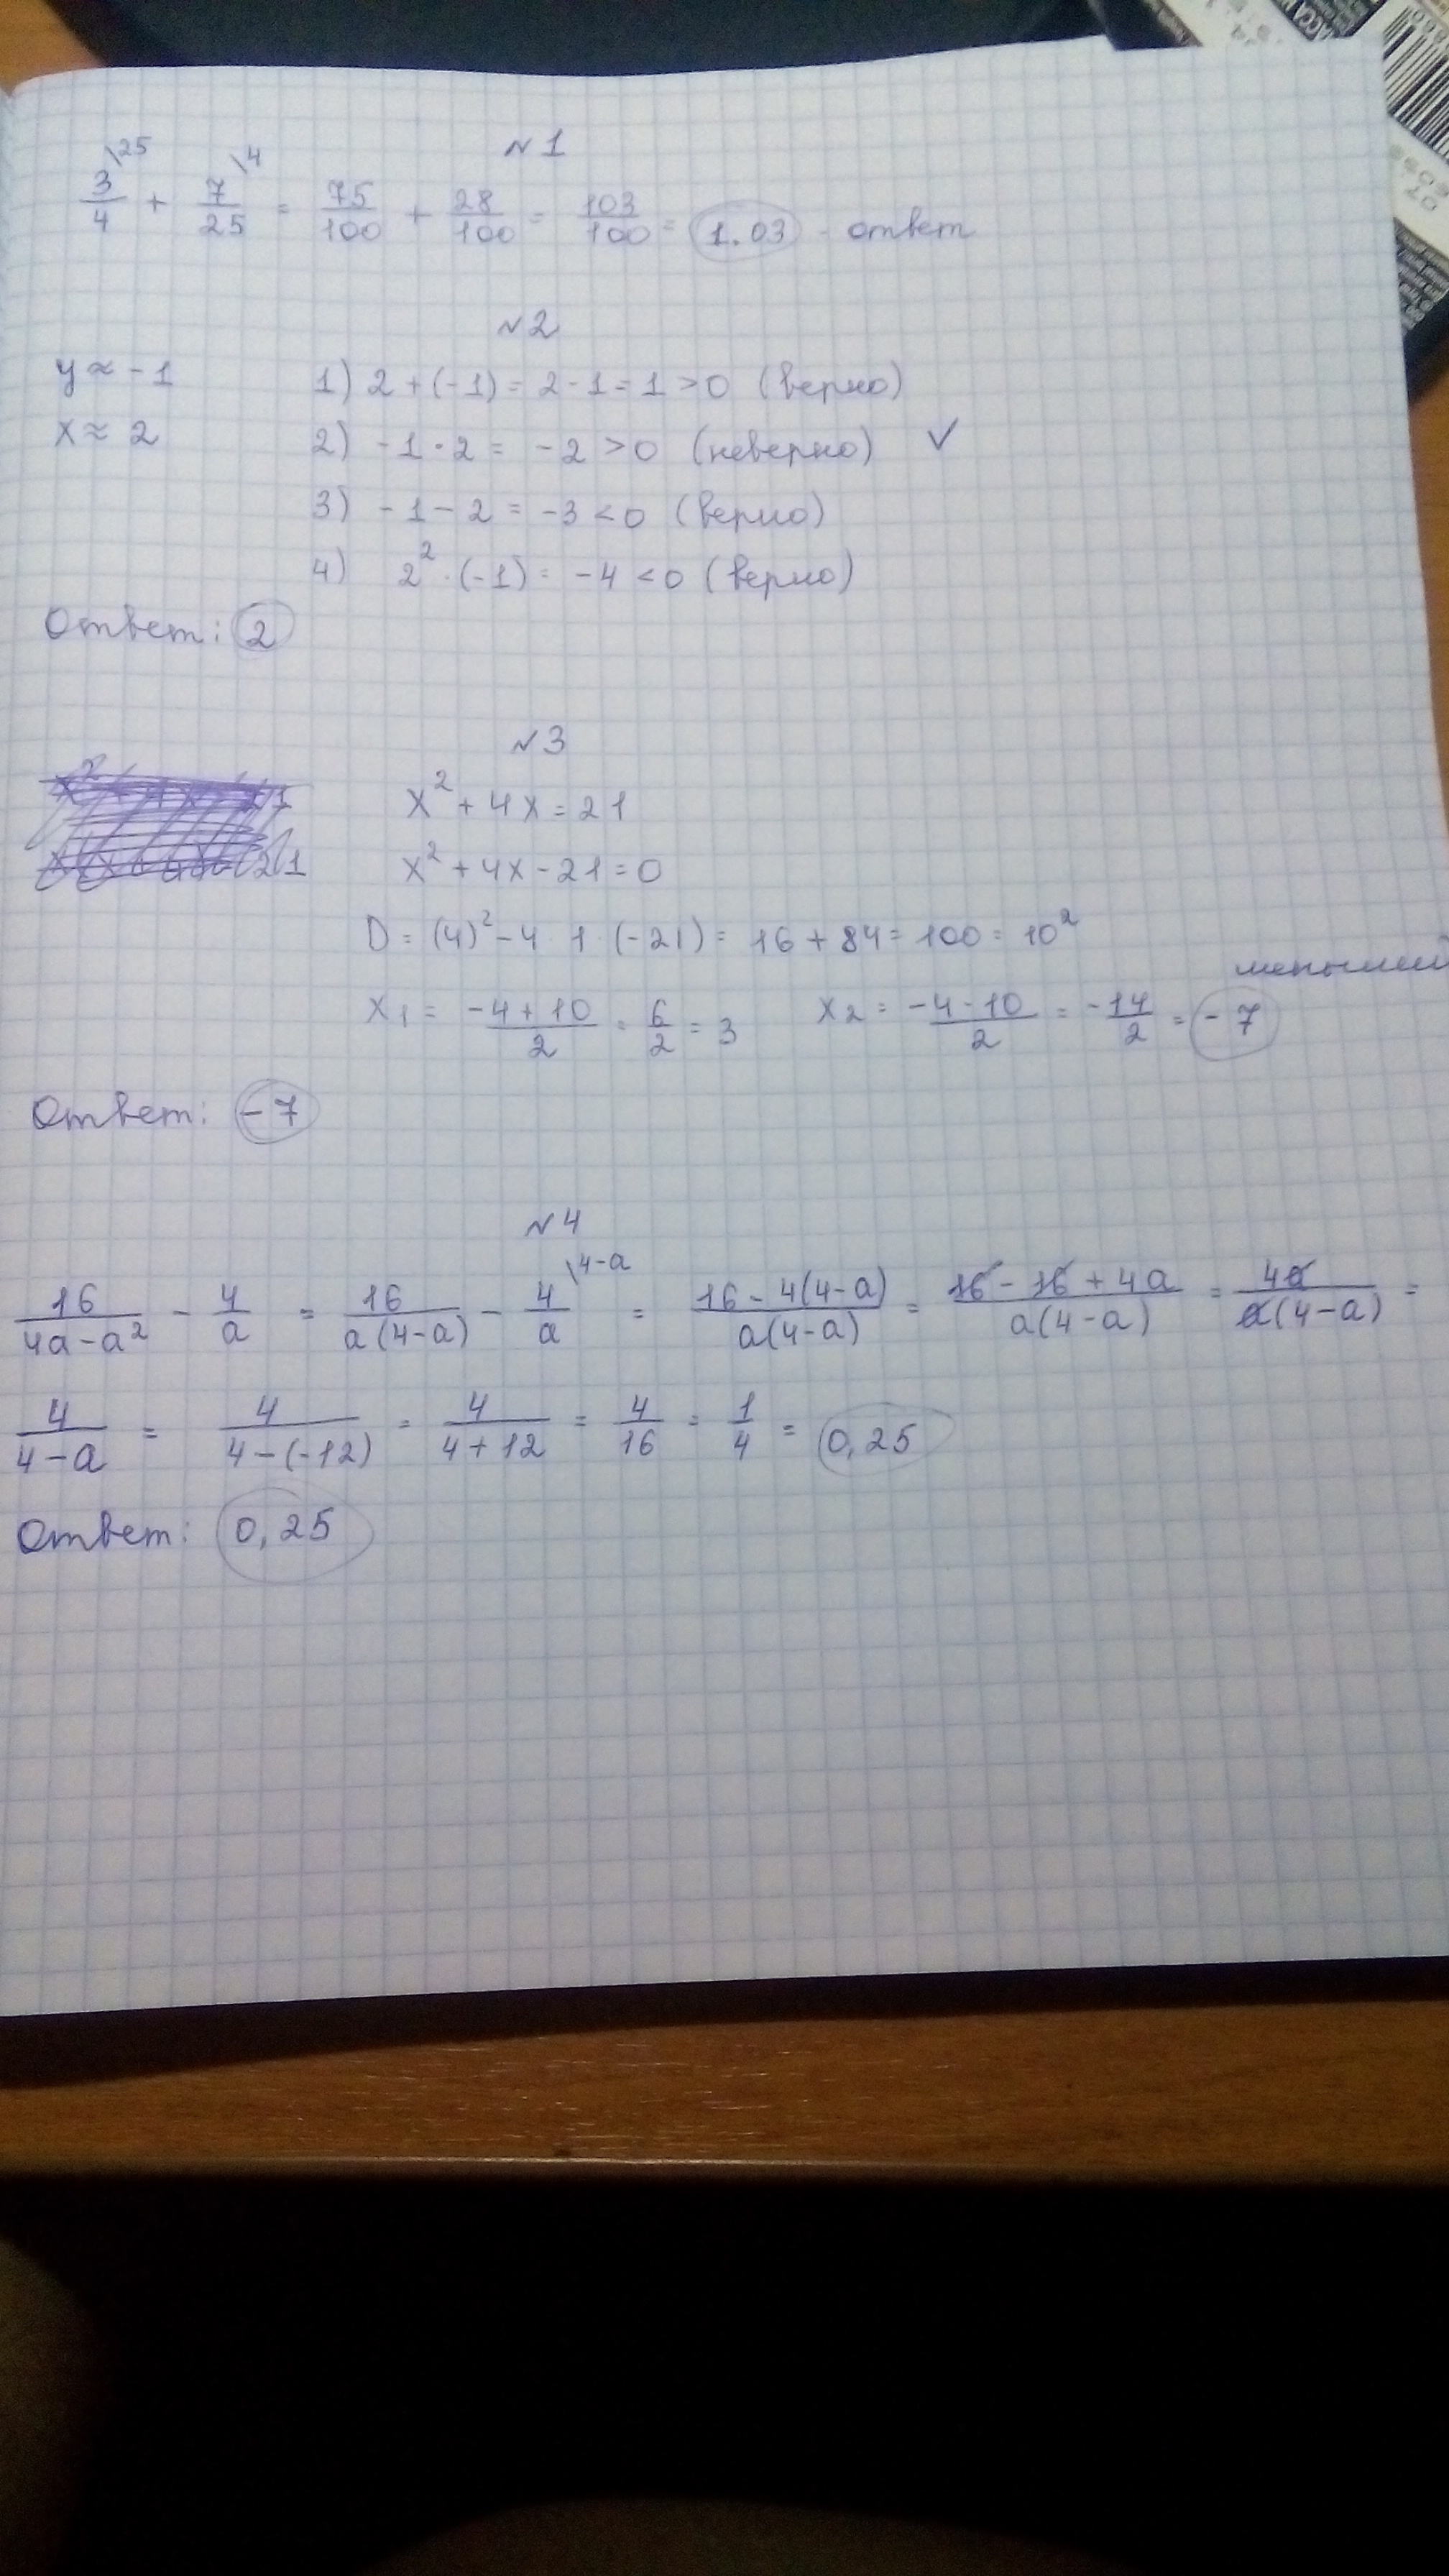 №1
3/4 \25 + 7/25 \4 = 75/100 + 28/100 = 103/100 = 1.03 - ответ
№2
y ≈ -1
x ≈ 2
1) 2 + (-1) = 2 - 1 = 1 > 0 (верно)
2) -1 · 2 = -2 > 0 (неверно) ✓
3) -1 - 2 = -3 < 0 (верно)
4) 2² · (-1) = -4 < 0 (верно)
Ответ: 2
№3
x² + 4x = 21
x² + 4x - 21 = 0
D = (4)² - 4 · 1 · (-21) = 16 + 84 = 100 = 10²
меньший
x₁ = (-4 + 10)/2 = 6/2 = 3 x₂ = (-4 - 10)/2 = -14/2 = -7
Ответ: -7
№4
16/(4a - a²) - 4/a = 16/(a(4-a)) - 4/a \4-a = (16 - 4(4-a))/(a(4-a)) = (16 - 16 + 4a)/(a(4-a)) = 4a/(a(4-a)) =
4/(4-a) = 4/(4-(-12)) = 4/(4+12) = 4/16 = 1/4 = 0,25
Ответ: 0,25